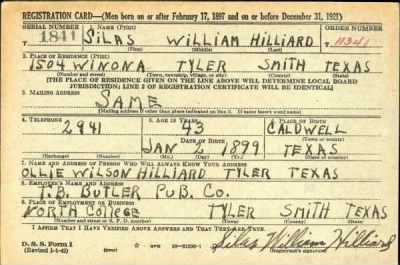 REGISTRATION CARD—(Men born on or after February 17, 1897 and on or before December 31, 1921)
SERIAL NUMBER 1. NAME (Print) ORDER NUMBER
1841 SILAS WILLIAM HILLIARD 11341
(First) (Middle) (Last)
2. PLACE OF RESIDENCE (Print)
1504 WINONA TYLER SMITH TEXAS
(Number and street) (Town, township, village, or city) (County) (State)
[THE PLACE OF RESIDENCE GIVEN ON THE LINE ABOVE WILL DETERMINE LOCAL BOARD
JURISDICTION; LINE 2 OF REGISTRATION CERTIFICATE WILL BE IDENTICAL]
3. MAILING ADDRESS
SAME
[Mailing address if other than place indicated on line 2. If same insert word same]
4. TELEPHONE 5. AGE IN YEARS 6. PLACE OF BIRTH
2941 43 CALDWELL
DATE OF BIRTH (Town or county)
JAN 2 1899 TEXAS
(Exchange) (Number) (Mo.) (Day) (Yr.) (State or country)
7. NAME AND ADDRESS OF PERSON WHO WILL ALWAYS KNOW YOUR ADDRESS
OLLIE WILSON HILLIARD TYLER TEXAS
8. EMPLOYER'S NAME AND ADDRESS
T.B. BUTLER PUB. CO.
9. PLACE OF EMPLOYMENT OR BUSINESS
NORTH College TYLER SMITH TEXAS
(Number and street or R. F. D. number) (Town) (County) (State)
I AFFIRM THAT I HAVE VERIFIED ABOVE ANSWERS AND THAT THEY ARE TRUE.
D. S. S. Form 1 Silas William Hilliard
(Revised 1-1-42)